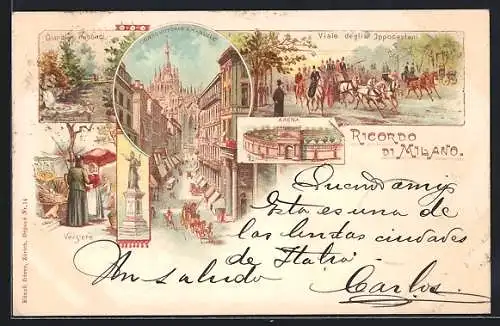 Giardini Pubblici
CORSO VITTORIO EMANUELE
Viale degli Ippocastani
ARENA
RICORDO
DI MILANO.
Verziere
Querido amigo
Esta es una de
las lindas ciudades
de Italia
Un saludo
Carlos
Künzli frères, Zürich, Déposé Nr. 14